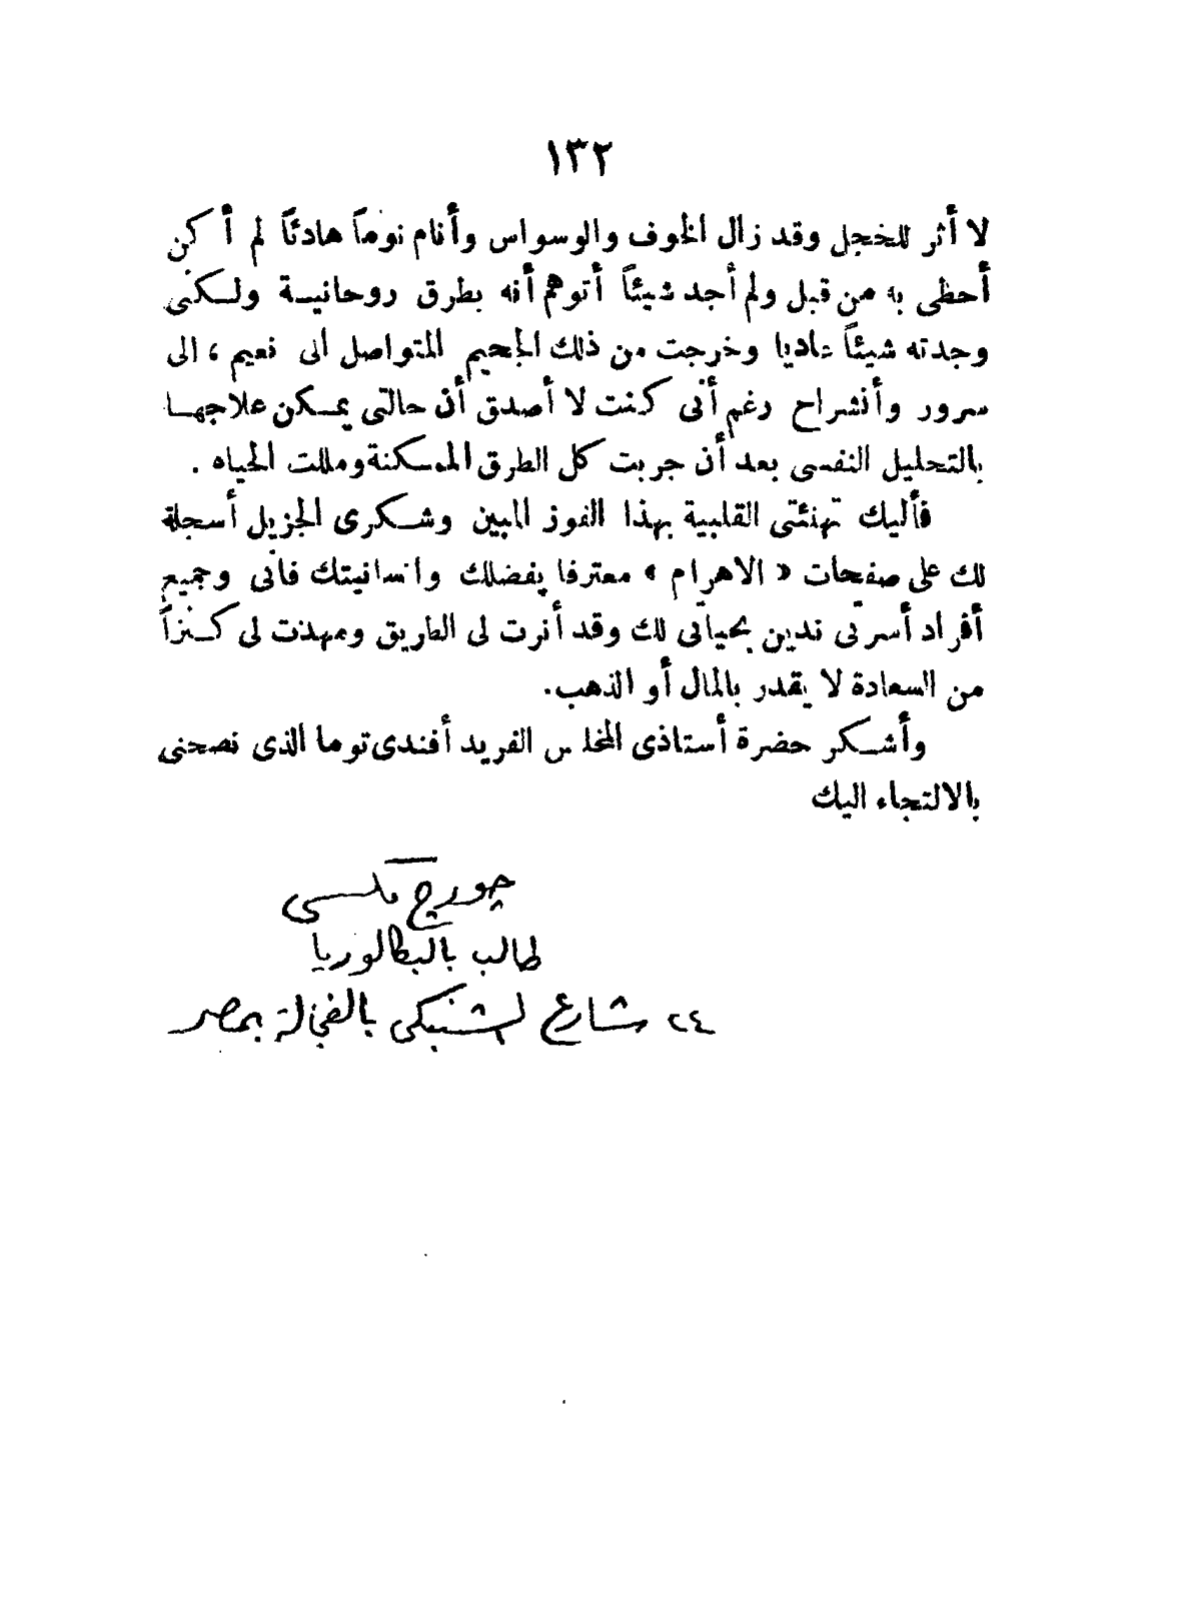 ١٣٢
لا أثر للخجل وقد زال الخوف والوسواس وأنام نوماً هادئاً لم أكن
أحظى به من قبل ولم أجد شيئاً أتوهم أنه بطرق روحانية ولكنى
وجدته شيئاً عاديا وخرجت من ذلك الجحيم المتواصل الى نعيم ، الى
سرور وأنشراح رغم أنى كنت لا أصدق أن حالتى يمكن علاجها
بالتحليل النفسى بعد أن جربت كل الطرق الممسكنة ومللت الحياه .
فأليك تهنئتى القلبية بهذا الفوز المبين وشكرى الجزيل أسجلة
لك على صفحات « الاهرام » معترفا بفضلك وانسانيتك فانى وجميع
أفراد أسرتى ندين بحياتى لك وقد أنرت لى الطريق ومهدت لى كنزاً
من السعادة لا يقدر بالمال أو الذهب.
وأشكر حضرة أستاذى المخلس الفريد أفندى توما الذى نصحنى
بالالتجاء اليك
چورچ مكسى
طالب بالبكالوريا
٢٤ شارع الشنبكى بالفجالة بمصر